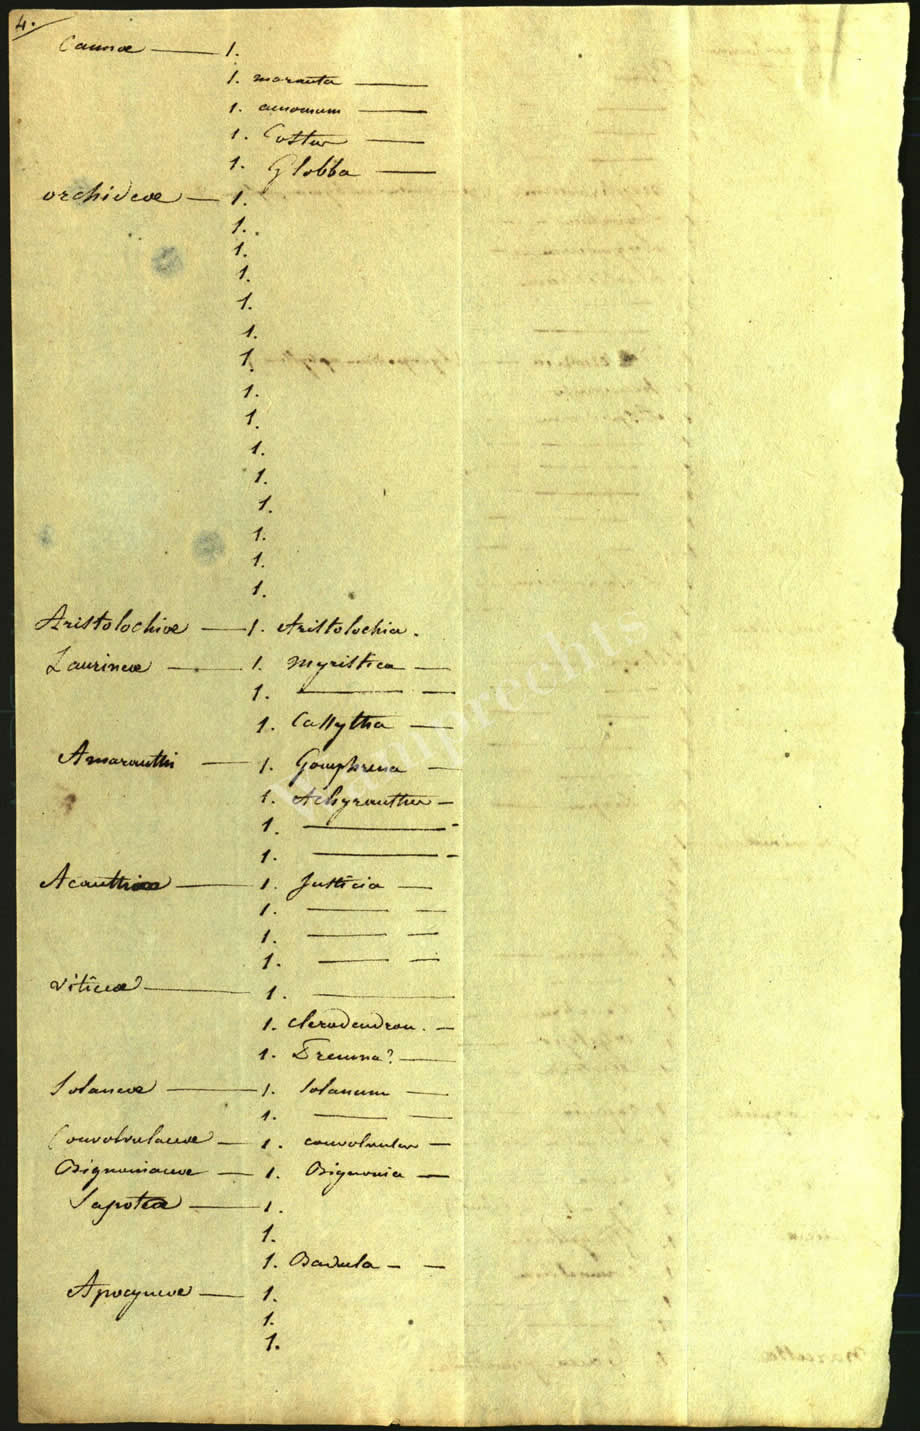 4.
Cannæ — 1.
1. maranta —
1. amomum —
1. Costus —
1. Globba —
orchideæ — 1.
1.
1.
1.
1.
1.
1.
1.
1.
1.
1.
1.
1.
1.
1.
Aristolochiæ — 1. Aristolochia.
Laurineæ — 1. myristica —
1. — —
1. Cassytha —
Amaranthi — 1. Gomphrena —
1. Achyranthes —
1. — -
1. — -
Acanthi — 1. Justicia —
1. — —
1. — —
1. — —
viticeæ — 1. —
1. Clerodendron. —
1. Premna? —
Solaneæ — 1. Solanum —
1. — —
Convolvulaceæ — 1. convolvulus —
Bignoniaceæ — 1. Bignonia —
Sapoteæ — 1.
1.
1. Badula — —
Apocyneæ — 1.
1.
1.
Lamprechts